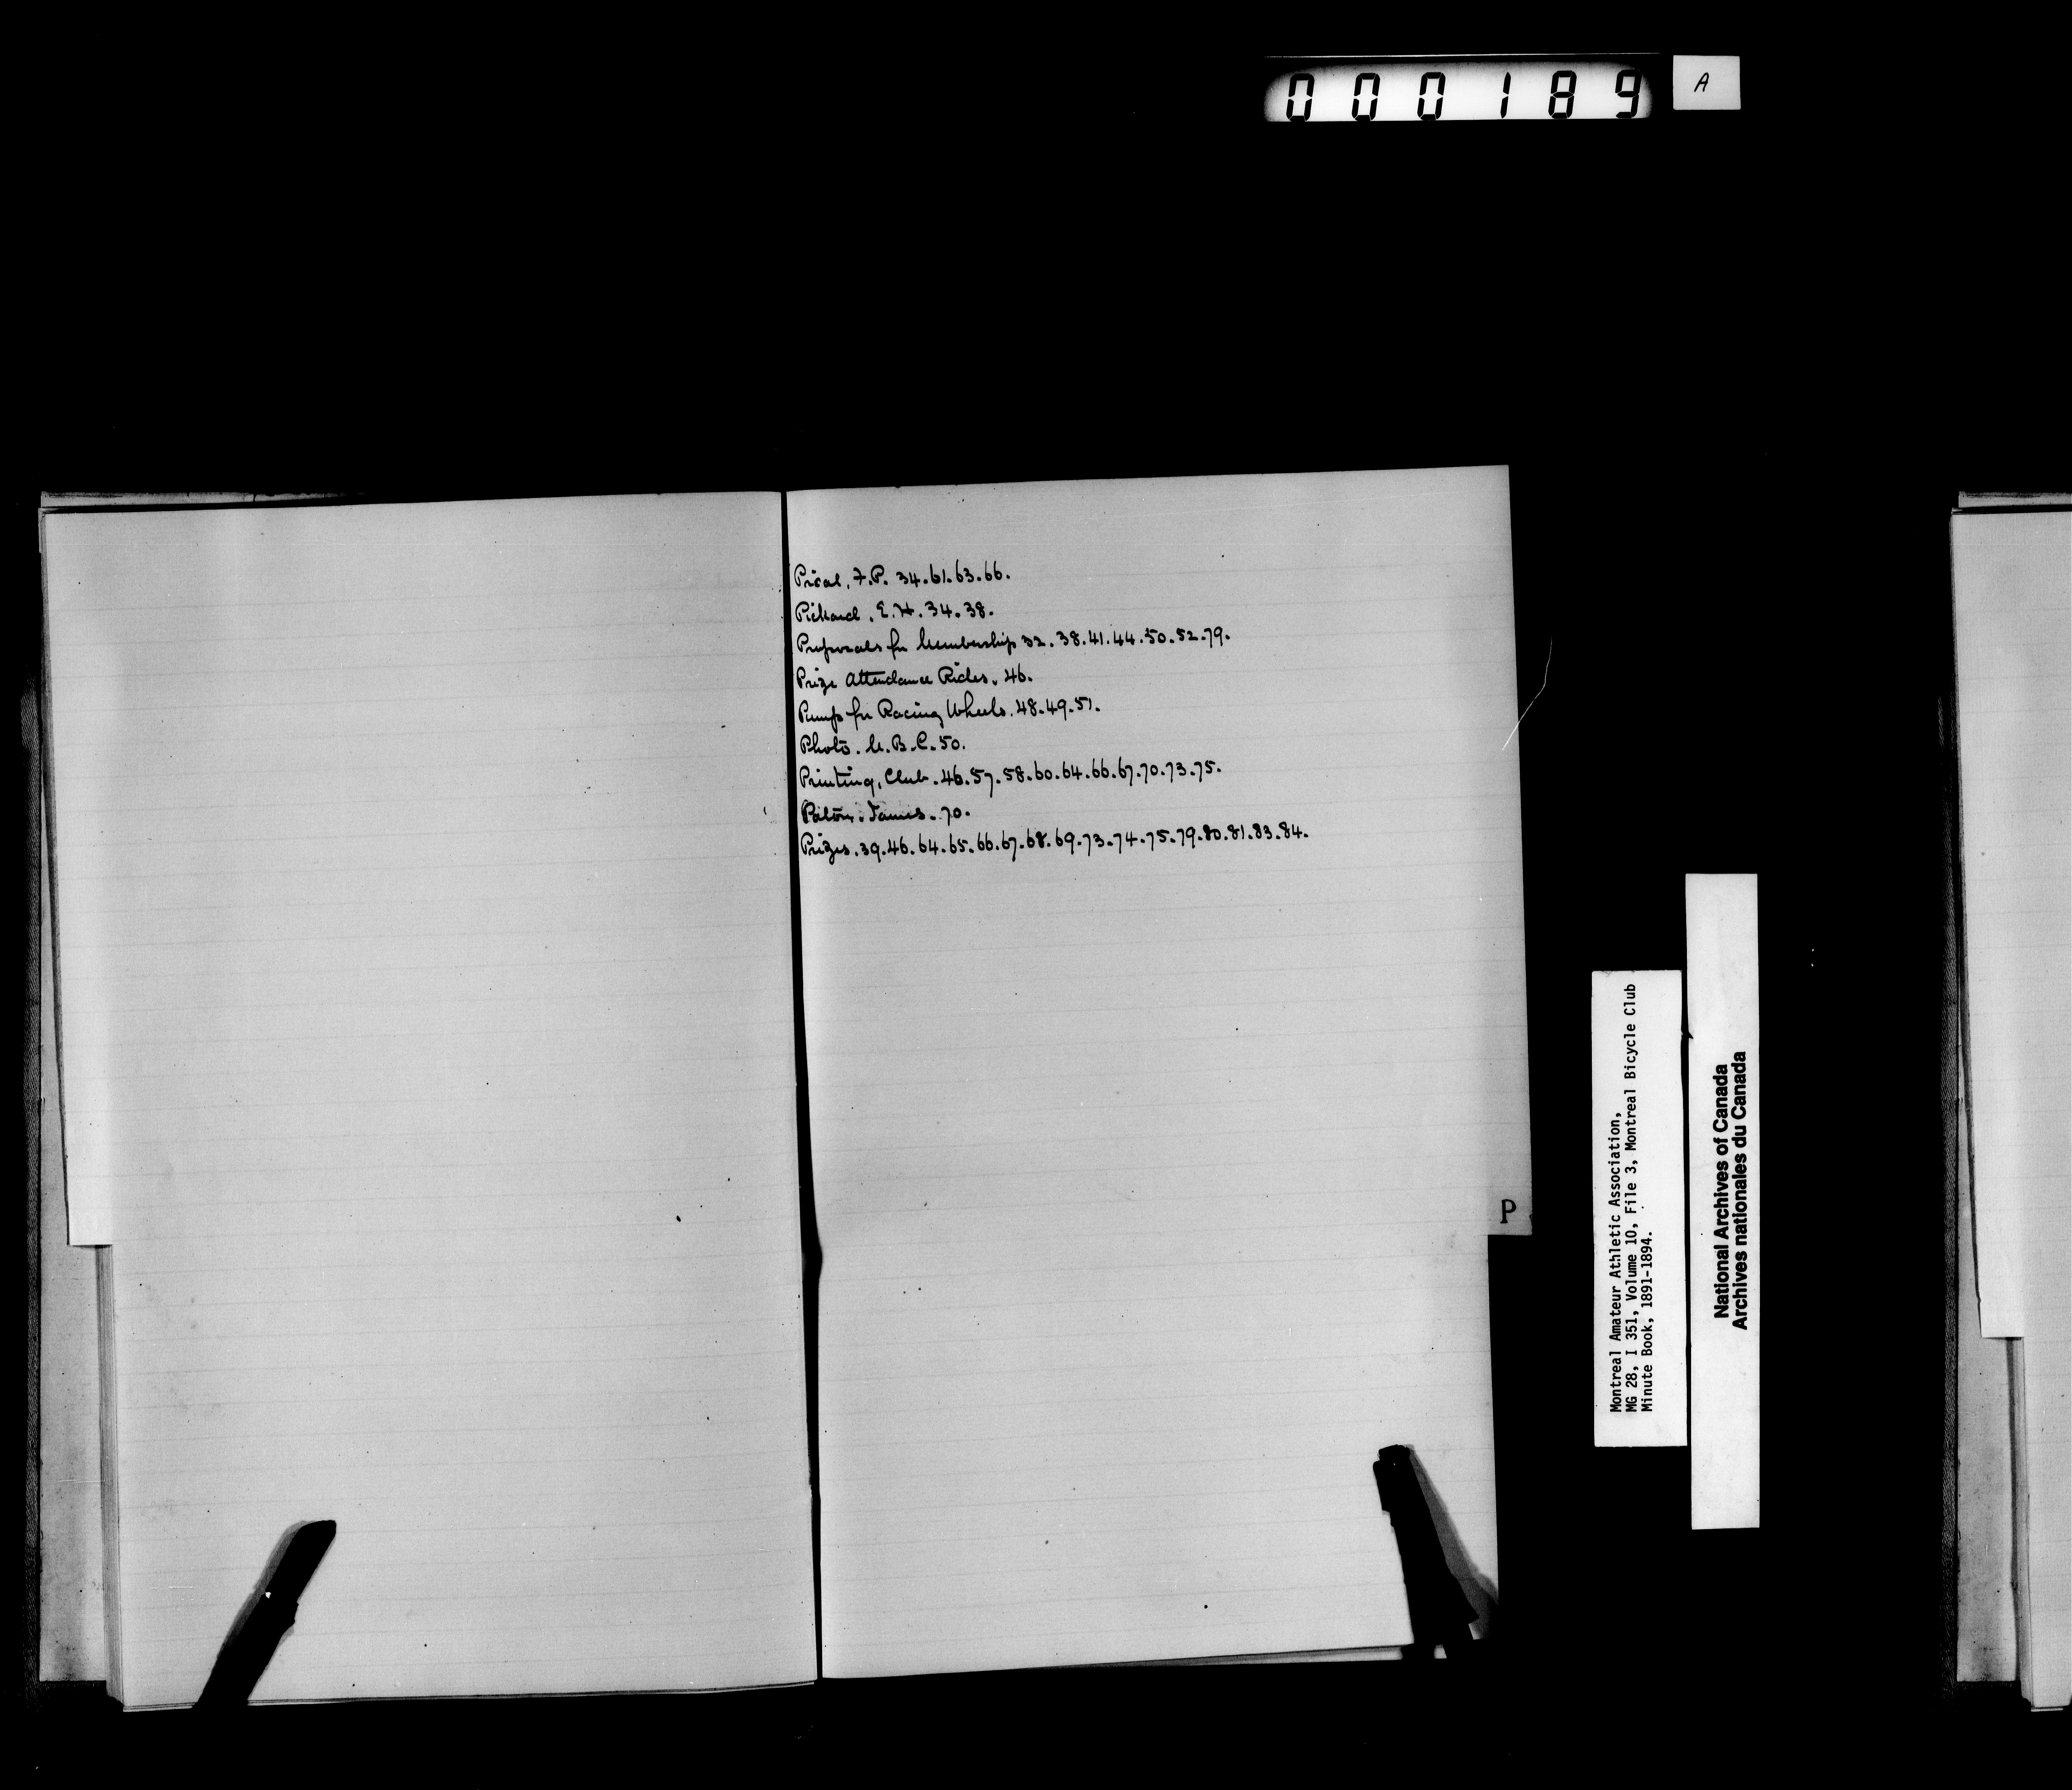 000189
A
Pical, F.P. 34.61.63.66.
Pickard. E.H. 34.38.
Proposals for Membership 32.38.41.44.50.52.79.
Prize Attendance Rides. 46.
Pump for Racing Wheels. 48.49.51.
Photo. M.B.C. 50.
Printing, Club. 46.57.58.60.64.66.67.70.73.75.
James. 70.
Prizes. 39.46.64.65.66.67.68.69.73.74.75.79.80.81.83.84.
P
Montreal Amateur Athletic Association,
MG 28, I 351, Volume 10, File 3, Montreal Bicycle Club
Minute Book, 1891-1894.
National Archives of Canada
Archives nationales du Canada